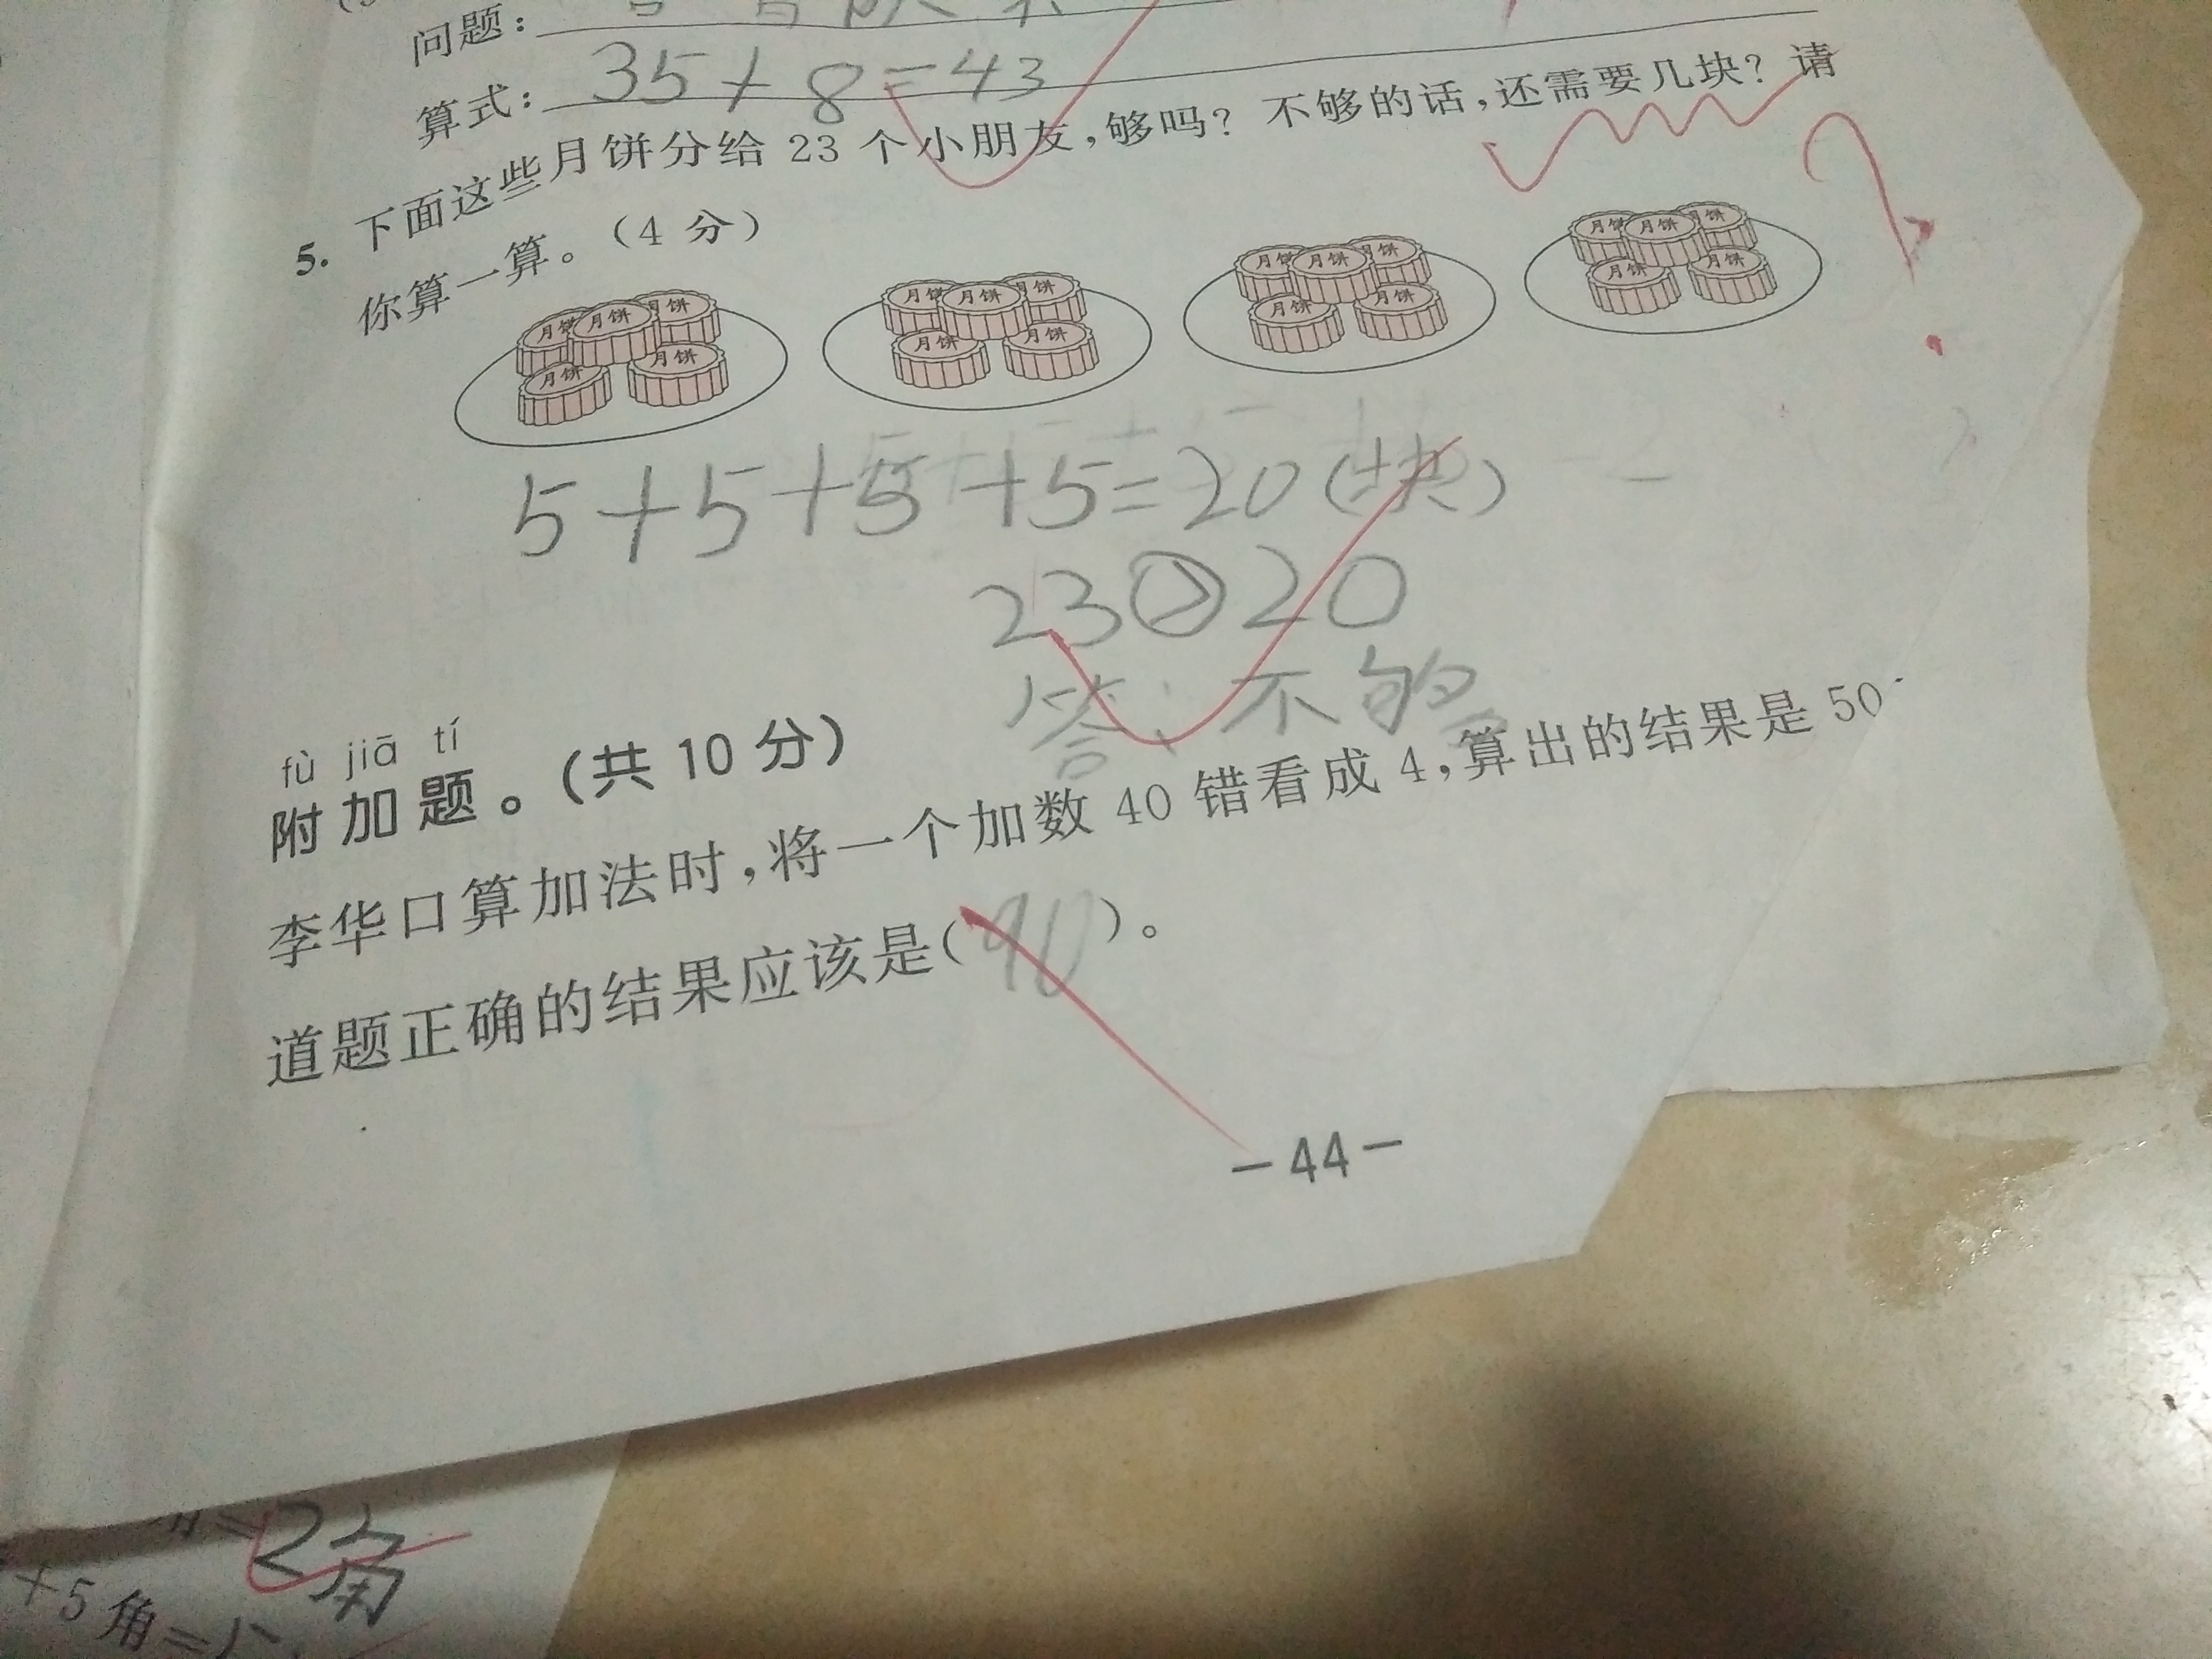 问题：
算式：35+8=43
5. 下面这些月饼分给 23 个小朋友,够吗？不够的话,还需要几块？请
你算一算。(4 分)
月饼 月饼 月饼 月饼 月饼
月饼 月饼 月饼 月饼 月饼
月饼 月饼 月饼 月饼 月饼
月饼 月饼 月饼 月饼 月饼
5+5+5+5=20(块)
23>20
答：不够
fù jiā tí
附加题。(共 10 分)
李华口算加法时,将一个加数 40 错看成 4,算出的结果是 50
道题正确的结果应该是(90)。
-44-
角=2角
+5角=